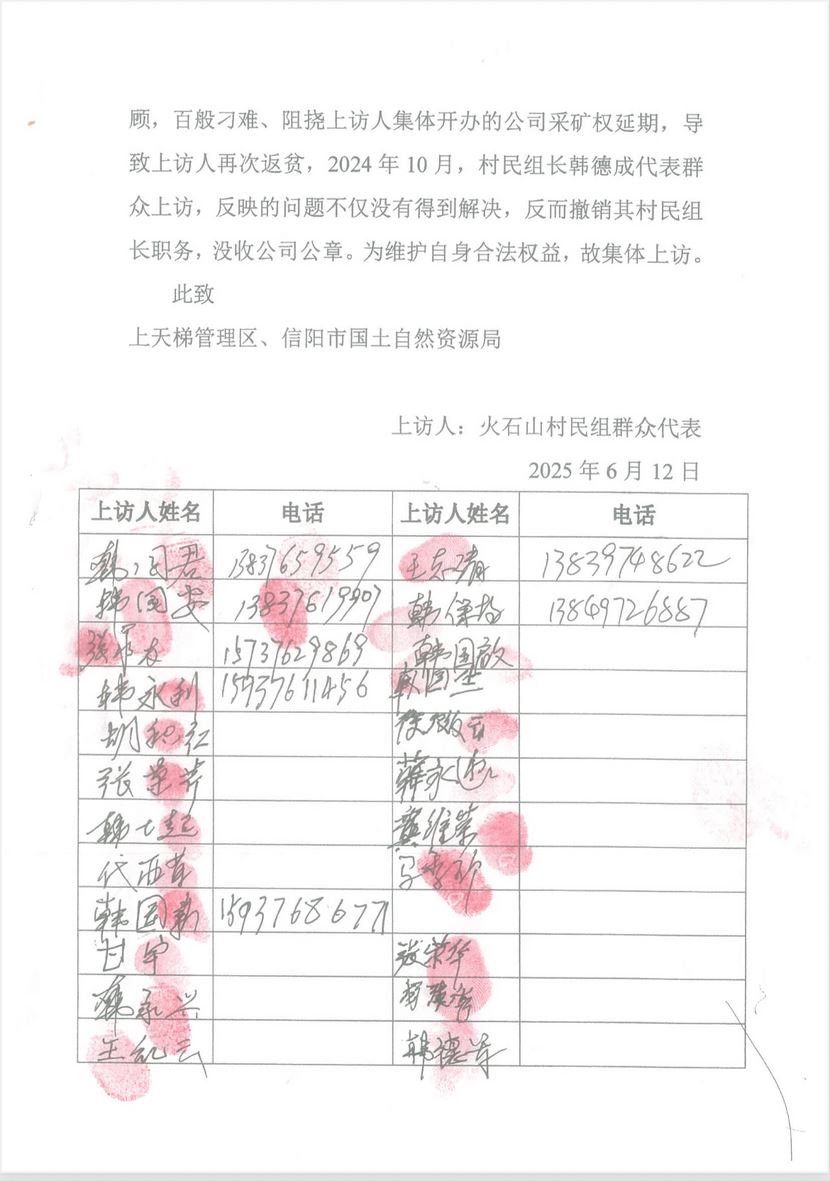 顾，百般刁难、阻挠上访人集体开办的公司采矿权延期，导
致上访人再次返贫，2024 年 10 月，村民组长韩德成代表群
众上访，反映的问题不仅没有得到解决，反而撤销其村民组
长职务，没收公司公章。为维护自身合法权益，故集体上访。
此致
上天梯管理区、信阳市国土自然资源局
上访人：火石山村民组群众代表
2025 年 6 月 12 日
上访人姓名 电话 上访人姓名 电话
韩国君 13837659559 13839748622
韩国安 13837619907 韩保 13849726887
15737629869 韩国启
韩永利 15937611456 韩国
胡积红
张荣芹
韩士起 龚维荣
代西
韩国新 15937686771
甘宇 张荣华
韩永兴
王纪云 韩德